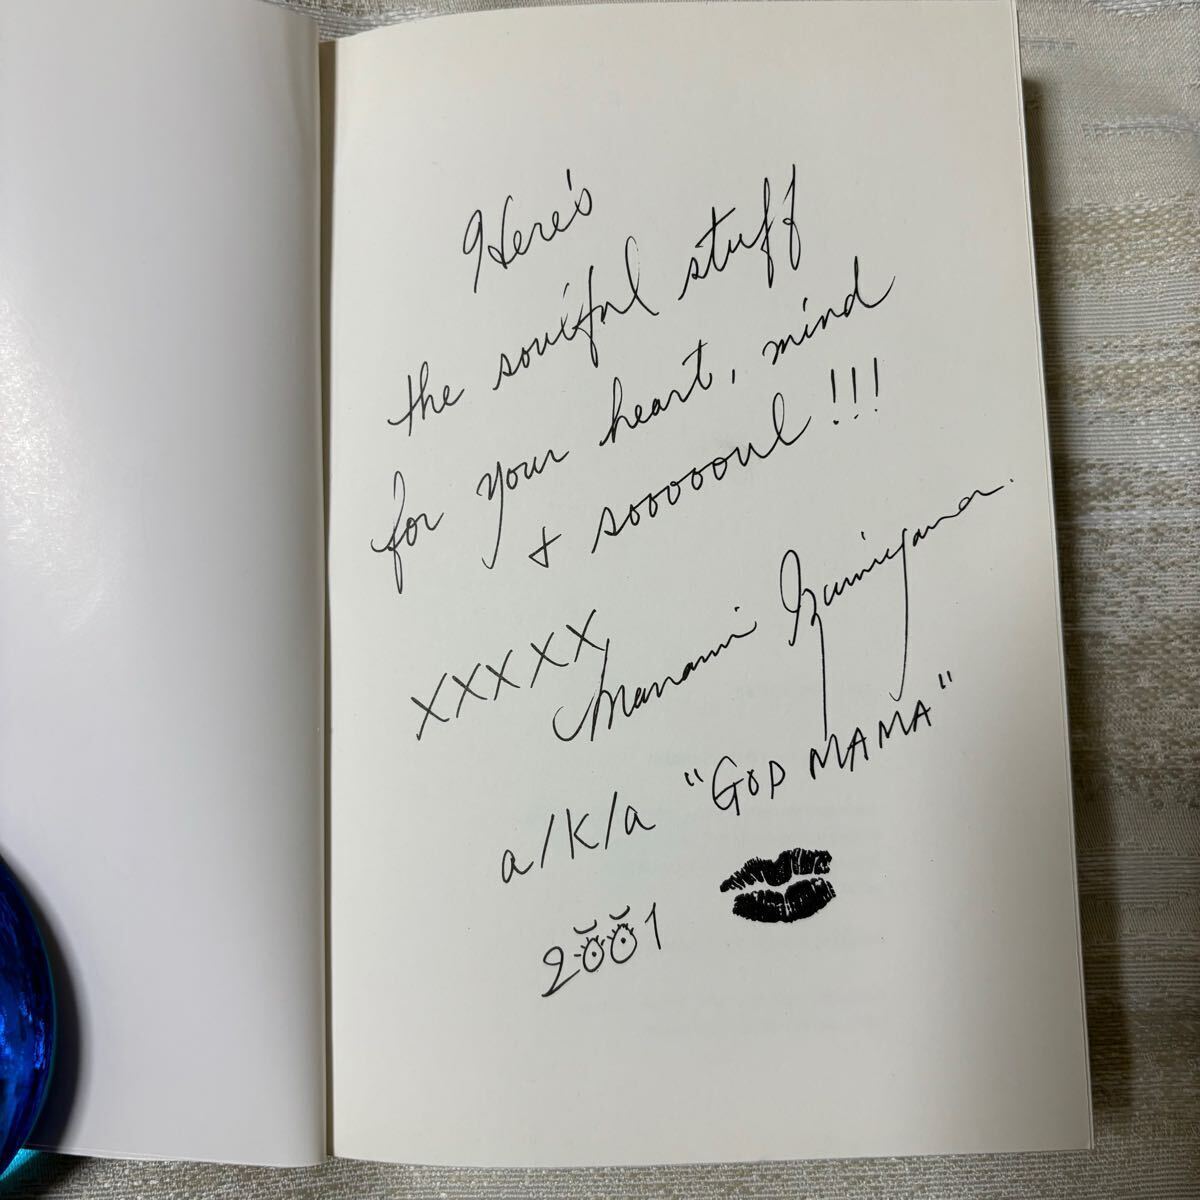 Here's
the soulful stuff
for your heart, mind
+ soooooul!!!
XXXXX
Manami Izumiyama.
a/k/a "GOD MAMA"
2001